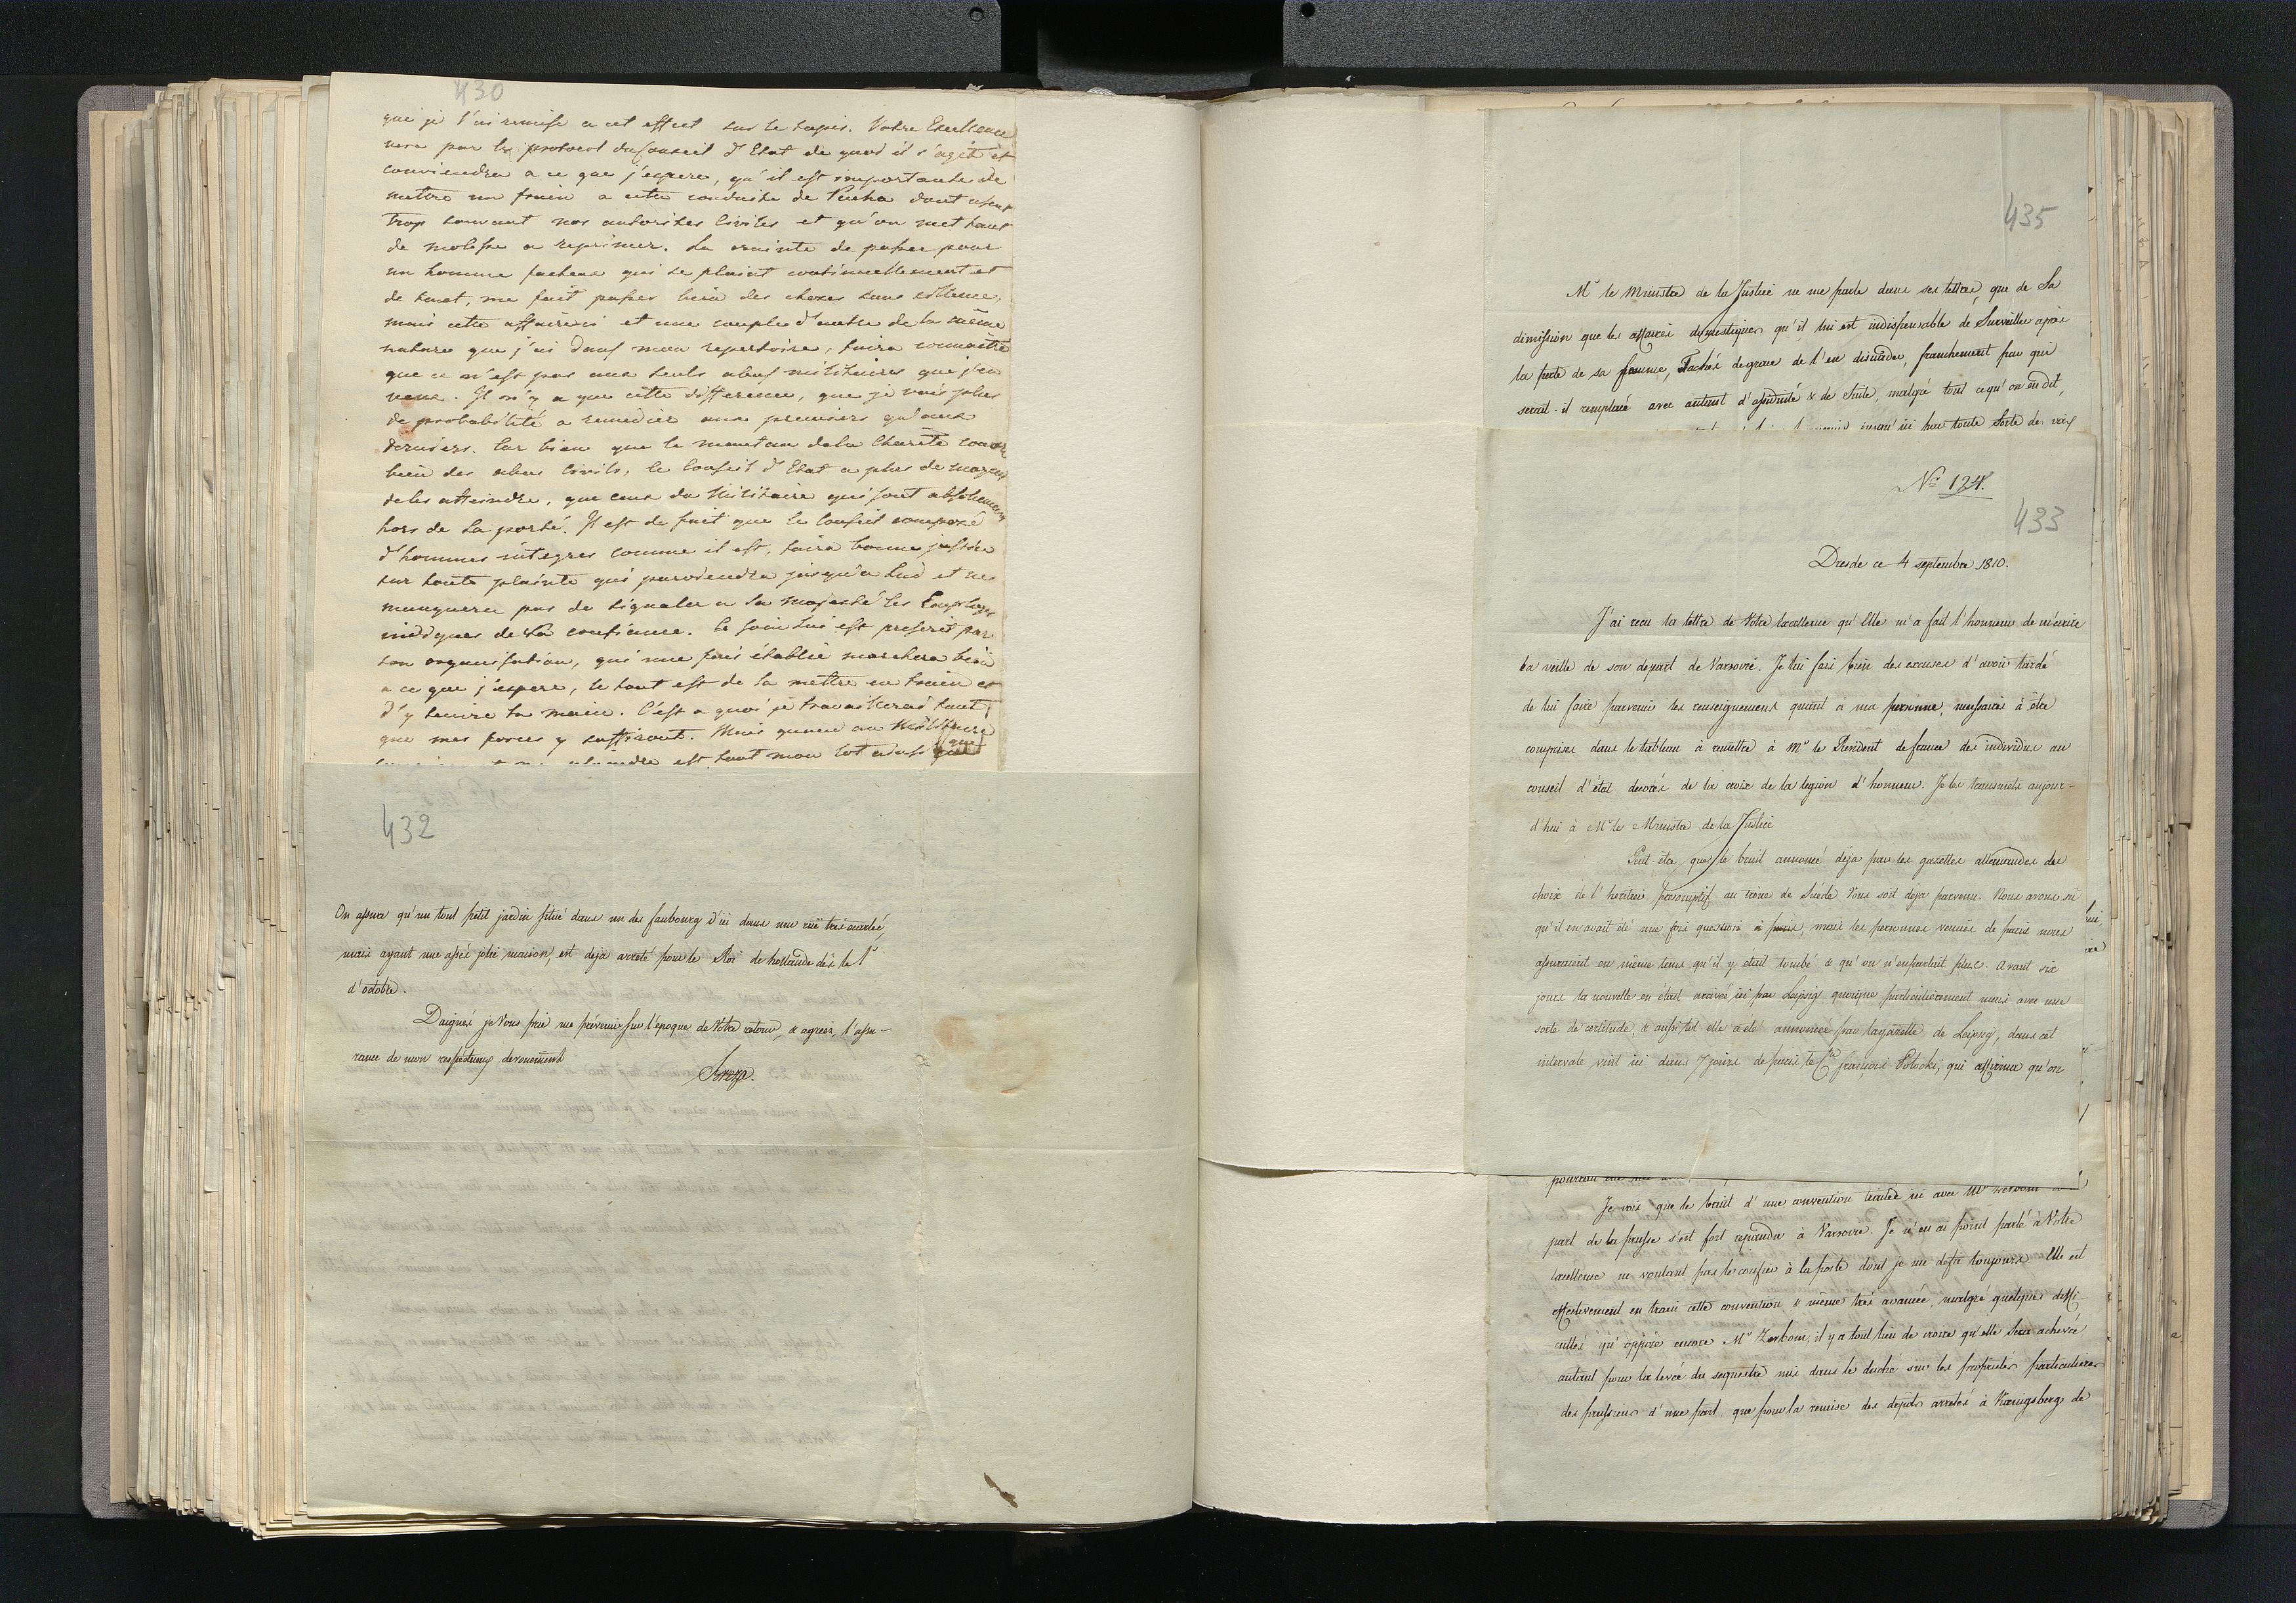 430
que je l'ai remise a cet effect sur le tapis. Votre Excellence
vera par le protocol du Conseil d'Etat de quoi il s'agit et
conviendra a ce que j'espere, qu'il est importante de
mettre un frein a cette conduite de Pacha dont usent
trop souvant nos autorites Civiles et qu'on met tant
de molesse a reprimer. La crainte de passer pour
un homme facheux qui se plaint continuellement et
de tout, me fait passer bien des choses sous silence,
mais cette affaire ci et une couple d'autre de la même
nature que j'ai dans mon repertoire, faira connoitre
que ce n'est pas aux seuls abus militaires que j'en
veux. Il n'y a que cette difference, que je vois plus
de probabilité a remedier aux premiers qu'aux
derniers. Car bien que le manteau de la Charité couvre
bien des abus Civils, le Conseil d'Etat a plus de moyens
de les atteindre, que ceux du Militaire qui sont absolument
hors de sa porté. Il est de fait que le Conseil composé
d'hommes integres comme il est, faira bonne justice
sur toute plainte qui parviendra jusqu'a Lui et ne
manquera pas de signaler a Sa Majesté les Employés
indignes de Sa confiance. Ce soin Lui est prescrit par
son organisation, qui une fois établie marchera bien
a ce que j'espere, le tout est de la mettre en train et
d'y tenir la main. C'est a quoi je travaillerai tant
que mes forces y suffiront. Mais quand au Militaire
est tout mon lot ainsi que
432
On assure qu'un tout petit jardin situé dans un des faubourg d'ici dans une rue très écartée,
mais ayant une assés jolie maison, est deja arreté pour le Roi de hollande dès le 1r
d'octobre.
Daignés je Vous prie me prévenir sur l'epoque de Votre retour, & agréez, l'assu-
rance de mon respectueux devouement
Breza.
435
Mr le Ministre de la Justice ne me parle dans ses lettres, que de Sa
dimission que les affaires domestiques qu'il lui est indispensable de Surveiller après
la perte de sa femme, Tachés de grace de l'en disuader, franchement par qui
serait-il remplacé avec autant d'assiduité & de Suite, malgré tout ce qu'on en dit,
jusqu'ici hors toute Sorte de
No 124.
433
Dresde ce 4 septembre 1810.
J'ai recu la lettre de Votre Excellence qu'Elle m'a fait l'honneur de m'écrire
la veille de son depart de Varsovie. Je lui fais bien des excuses d'avoir tardé
de lui faire parvenir les renseignemens quant à ma personne, necessaires à être
comprises dans le tableau à remettre à Mr le Résident de france des individus au
conseil d'état decorés de la croix de la legion d'honneur. Je les transmets aujour-
d'hui à Mr le Ministre de la Justice
Peut-être que le bruit annoncé déja par les gazettes allemandes du
choix de l'heritier presomptif au trône de Suède Vous soit deja parvenu. Nous avons sû
qu'il en avait été une fois question à paris, mais les personnes venües de paris nous
assuraient en même tems qu'il y était tombé & qu'on n'en parlait plus. Avant six
jours la nouvelle en était arrivée ici par Leipsig quoique particulièrement mais avec une
sorte de certitude, & aussitot elle a été annoncée par la gazette de Leipsig, dans cet
intervale vint ici dans 7 jours de paris le Cte françois Potocki, qui affirma qu'on
Je vois que le bruit d'une convention traitée ici avec Mr Zerboni de la
part de la prusse s'est fort repandu à Varsovie. Je n'en ai point parlé à Votre
Excellence ne voulant pas le confier à la poste dont je me défie toujours. Elle est
effectivement en train cette convention & même très avancée, malgré quelques diffi-
cultés qu'oppose encore Mr Zerboni, il y a tout lieu de croire qu'elle sera achevée
autant pour la levée du sequestre mis dans le duché sur les propriétés particulières
des prussiens d'une part que pour la remise des depots arretés à Kœnigsberg de